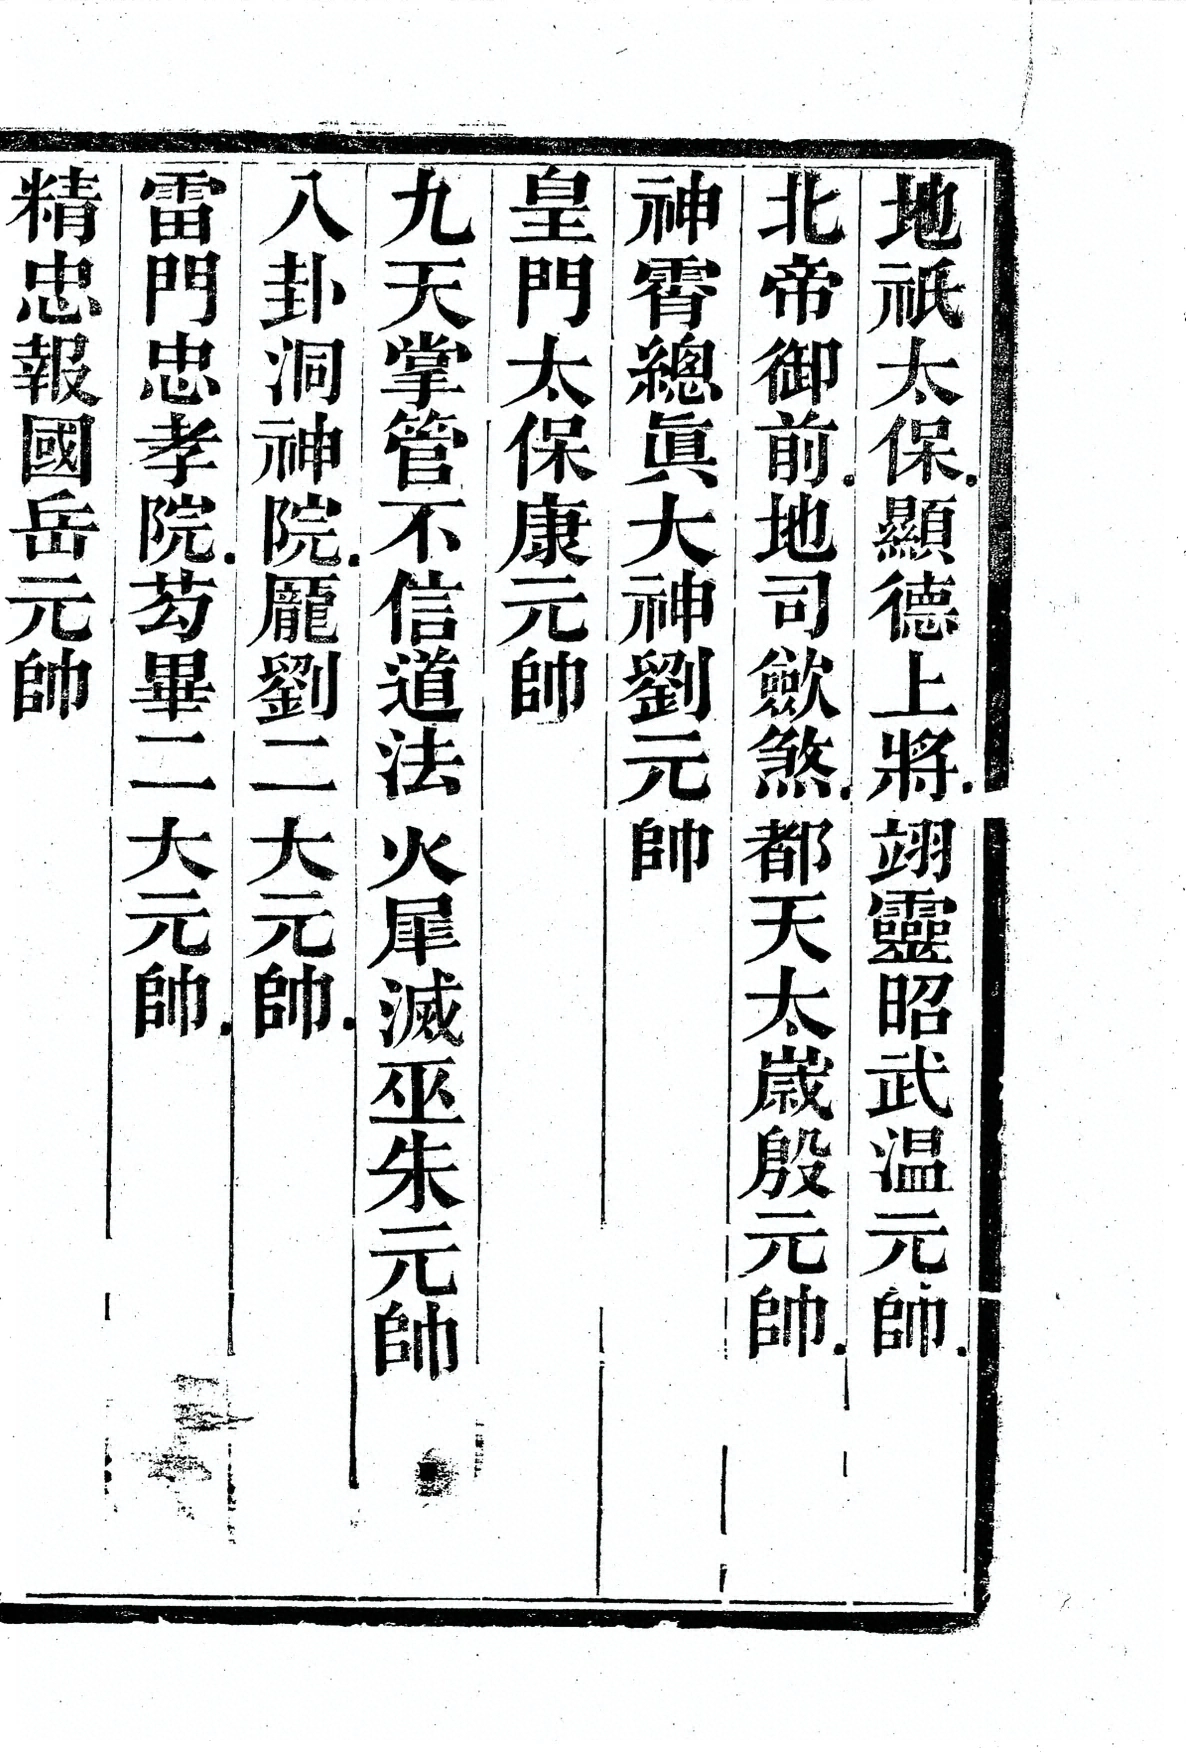 地祇太保顯德上將翊靈昭武温元帥
北帝御前地司歛煞都天太歲殷元帥
神霄總眞大神劉元帥
皇門太保康元帥
九天掌管不信道法火犀滅巫朱元帥
八卦洞神院龎劉二大元帥
雷門忠孝院茍畢二大元帥
精忠報國岳元帥